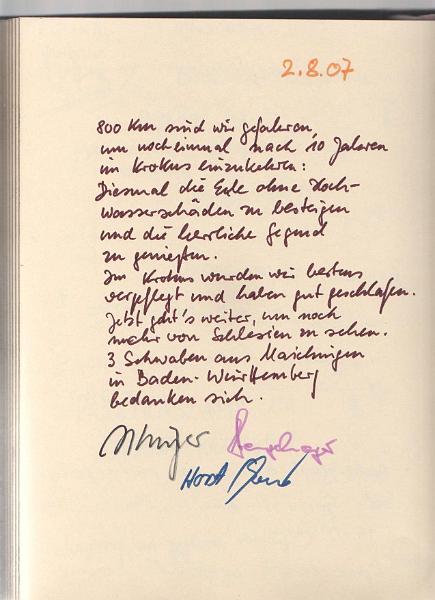 2.8.07
800 Km sind wir gefahren,
um noch einmal nach 10 Jahren
im Krokus einzukehren:
Diesmal die Eule ohne Hoch-
wasserschäden zu besteigen
und die herrliche Gegend
zu genießen.
Im Krokus wurden wir bestens
verpflegt und haben gut geschlafen.
Jetzt geht's weiter, um noch
mehr von Schlesien zu sehen.
3 Schwaben aus Maichingen
in Baden-Württemberg
bedanken sich.
Horst